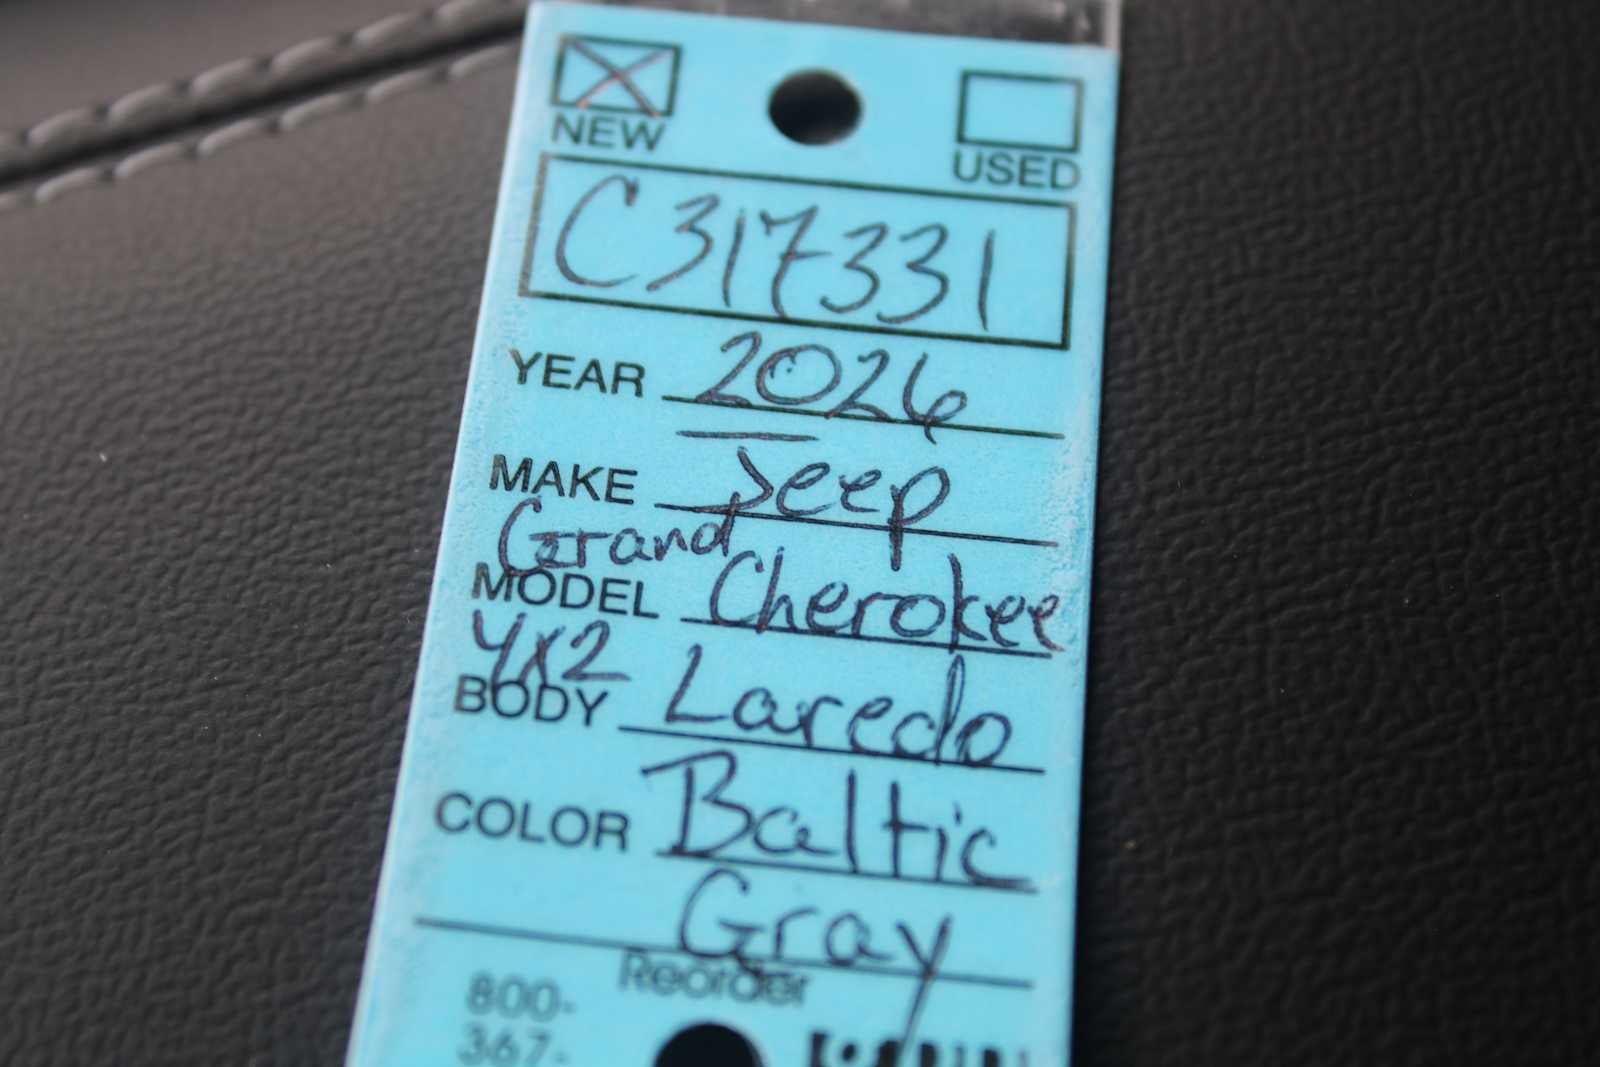 NEW USED
C317331
YEAR 2026
MAKE Jeep
Grand
MODEL Cherokee
4x2
BODY Laredo
COLOR Baltic
Gray
Reorder
800-
367-